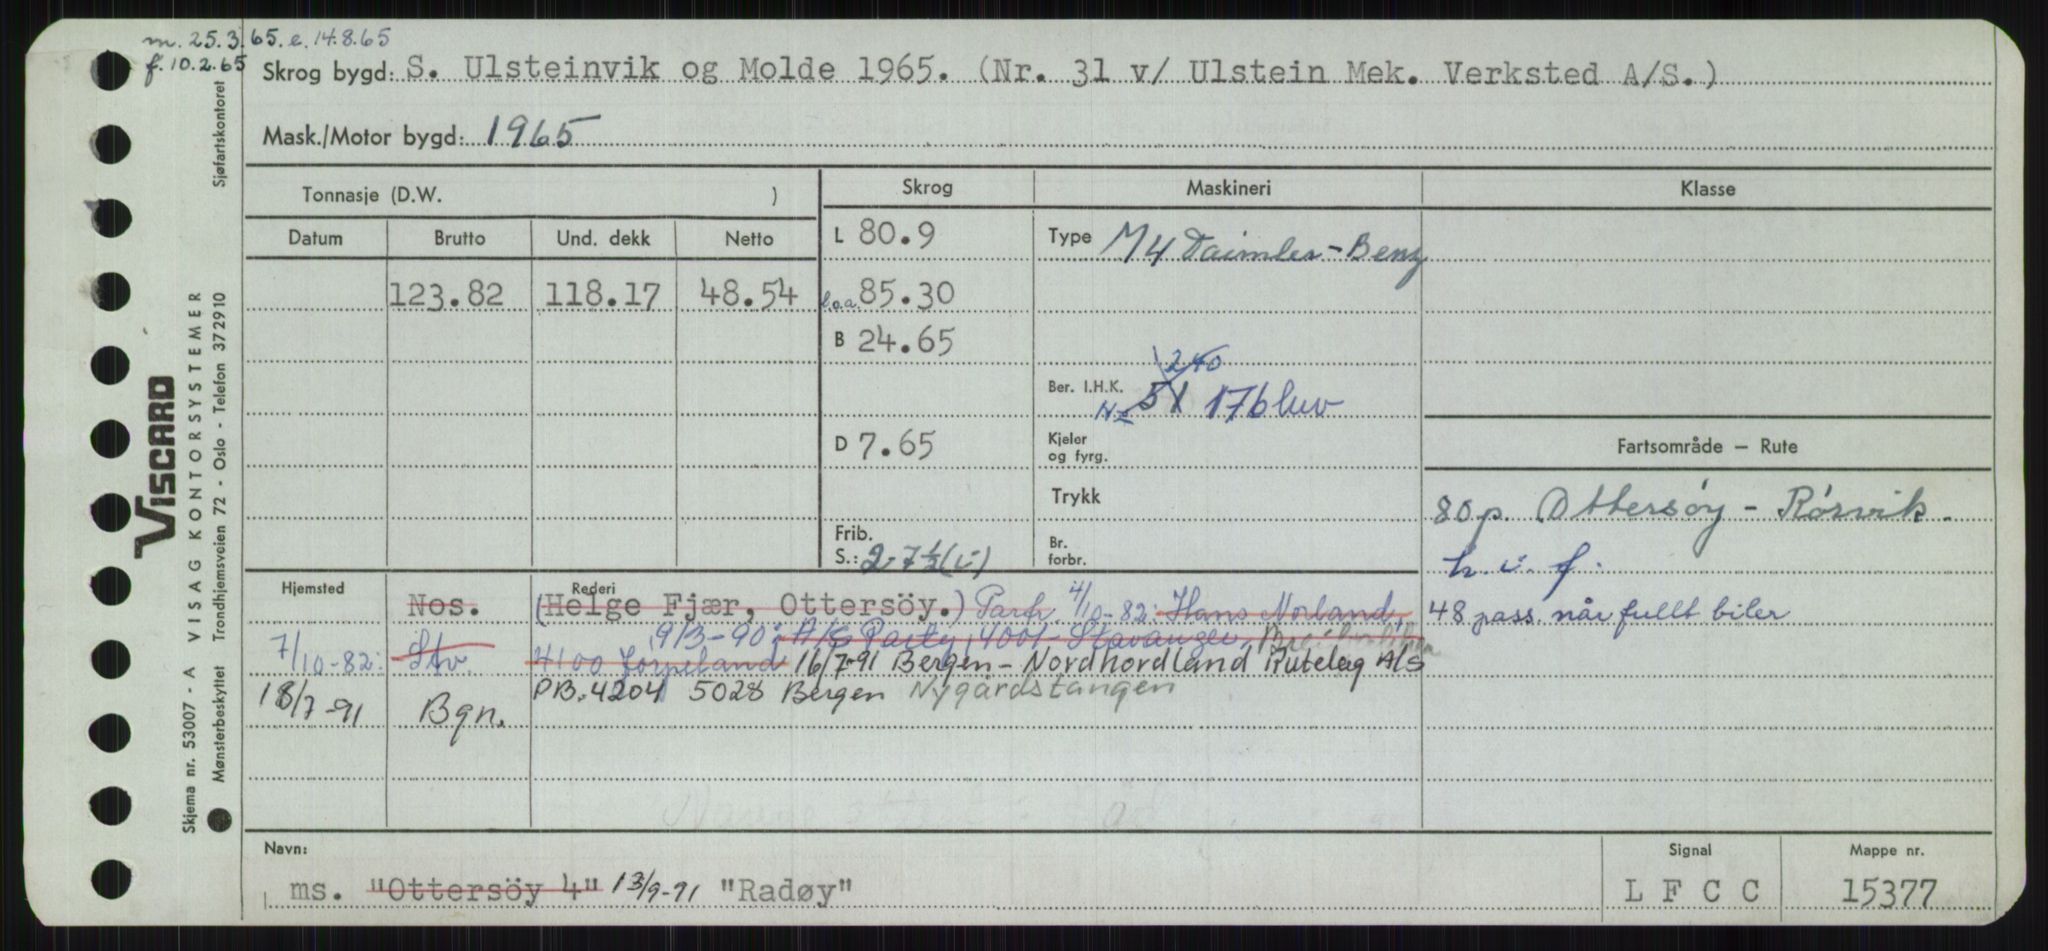 m. 25.3.65. e. 14.8.65
f. 10.2.65
Skrog bygd: S. Ulsteinvik og Molde 1965. (Nr. 31 v/ Ulstein Mek. Verksted A/S.)
Mask./Motor bygd: 1965
Tonnasje (D.W. )
Skrog
Maskineri
Klasse
Datum Brutto Und. dekk Netto
123.82 118.17 48.54
L 80.9
l.o.a. 85.30
B 24.65
D 7.65
Frib.
S.: 2-7½(i)
Type M4 Daimler-Benz
240
Ber. I.H.K. 51 176 kw
Kjeler
og fyrg.
Trykk
Br.
forbr.
Fartsområde — Rute
80 p. Ottersöy - Rörvik.
h. i. f.
48 pass. når fullt biler
Hjemsted
Rederi
Nos. (Helge Fjær, Ottersöy.) Partr. 4/10-82: Hans Norland,
9/3-90: A/S Party, 4001 Stavanger,
7/10-82: Stv. 4100 Jörpeland 16/7-91 Bergen-Nordhordland Rutelag A/S
PB. 4204 5028 Bergen Nygårdstangen
18/7-91 Bgn.
Navn:
ms. "Ottersöy 4" 13/9-91 "Radøy"
Signal
L F C C
Mappe nr.
15377
VISCARD
Skjema nr. 53007 - A VISAG KONTORSYSTEMER
Mønsterbeskyttet Trondhjemsveien 72 - Oslo - Telefon 372910 Sjøfartskontoret